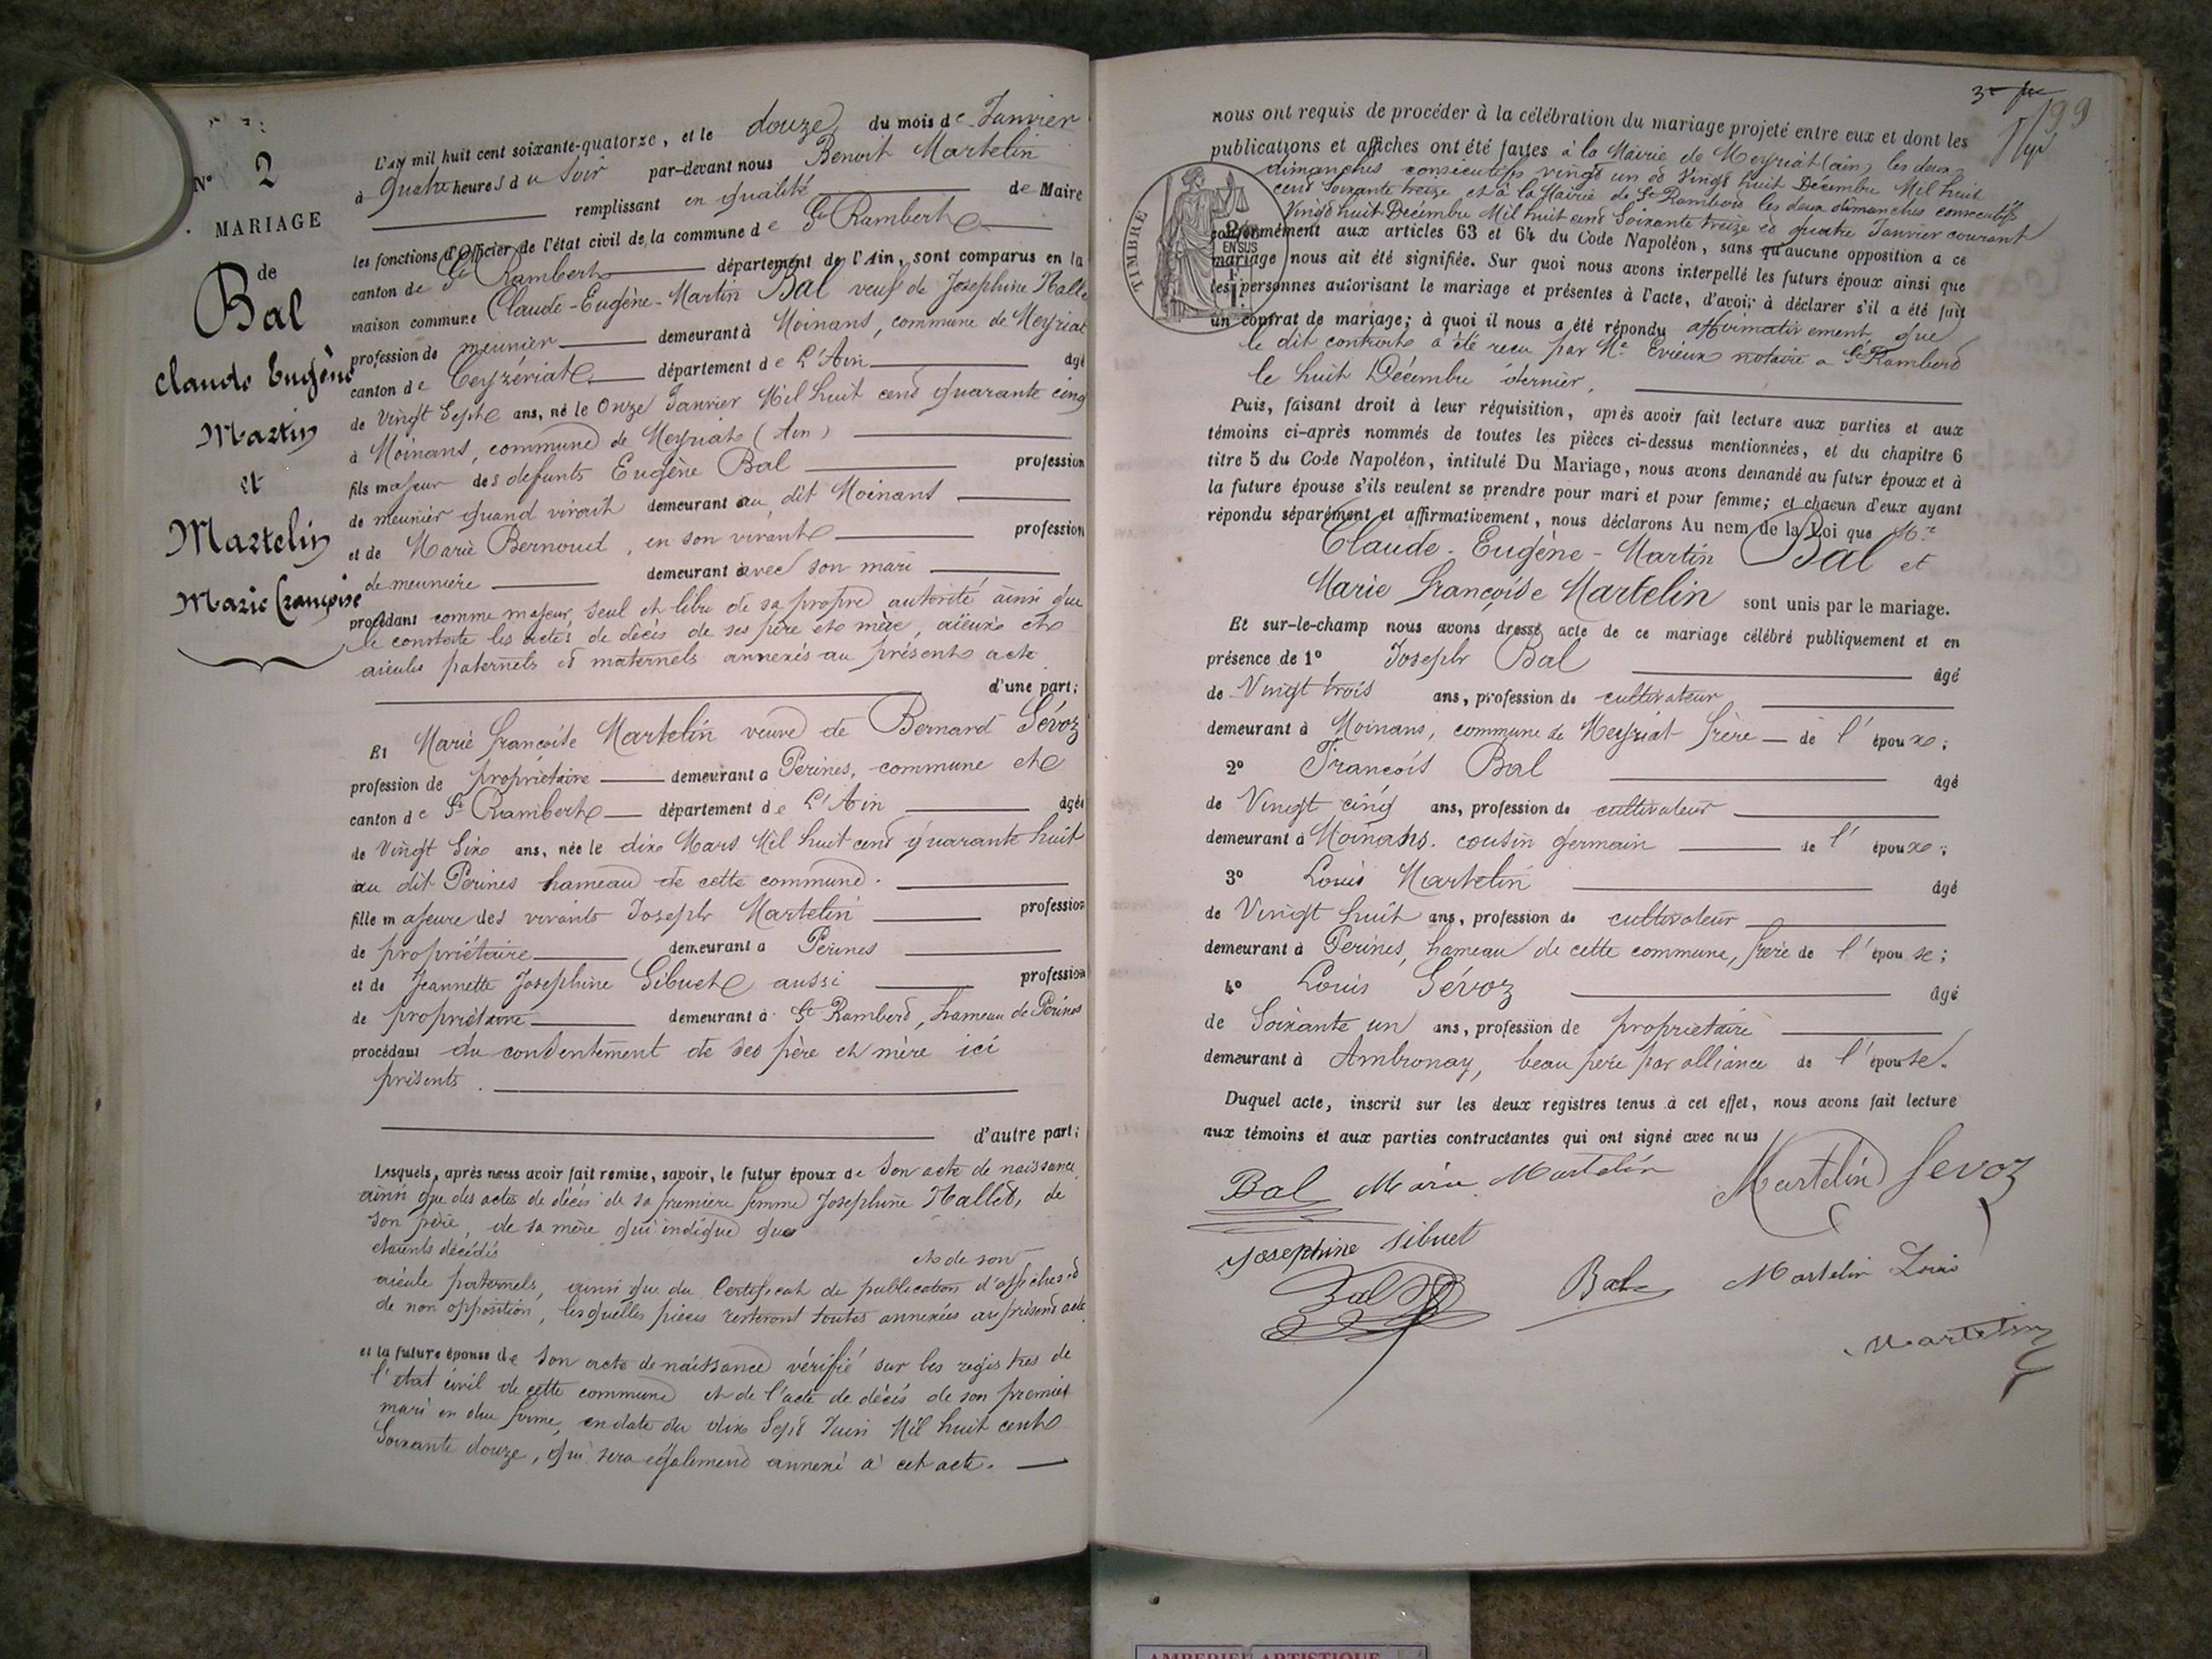 N° 2
MARIAGE
de
Bal
Claude Eugène
Martin
et
Martelin
Marie Françoise
L'an mil huit cent soixante-quatorze, et le douze du mois de Janvier
à quatre heures du Soir par-devant nous Benoit Martelin
remplissant en qualité de Maire
les fonctions d'Officier de l'état civil de la commune de St Rambert
canton de St Rambert département de l'Ain, sont comparus en la
maison commune Claude-Eugène-Martin Bal veuf de Josephine Halle
profession de meunier demeurant à Moinans, commune de Meyriat
canton de Ceyzériat département de L'Ain âgé
de Vingt Sept ans, né le Onze Janvier Mil huit cent quarante cinq
à Moinans, commune de Meyriat (Ain)
fils majeur des défunts Eugène Bal profession
de meunier quand vivait demeurant au dit Moinans
et de Marie Bernoud, en son vivant profession
de meunière demeurant avec son mari
procédant comme majeur, seul et libre de sa propre autorité ainsi que
le constate les actes de décès de ses père et mère, aieux et
aieules paternels et maternels annexés au présent acte
d'une part;
Et Marie françoise Martelin veuve de Bernard Sévoz
profession de propriétaire demeurant à Perines, commune et
canton de St Rambert département de L'Ain âgée
de Vingt Six ans, née le dix Mars Mil huit cent quarante huit
au dit Perines hameau de cette commune.
fille majeure des vivants Joseph Martelin profession
de propriétaire demeurant à Perines
et de Jeannette Josephine Sibuet aussi profession
de propriétaire demeurant à St Rambert, hameau de Perines
procédant du consentement de ses père et mère ici
présents.
d'autre part;
Lesquels, après nous avoir fait remise, savoir, le futur époux de Son acte de naissance
ainsi que des actes de décès de sa première femme Josephine Hallet, de
son père, de sa mère qui indique que
étaients décédés et de son
aieule paternels, ainsi que du Certificat de publication d'affiches et
de non opposition, lesquelles pièces resteront toutes annexées au présent acte
et la future épouse de Son acte de naissance vérifié sur les registres de
l'état civil de cette commune et de l'acte de décès de son premier
mari en due forme, en date du dix Sept Juin Mil huit cent
Soixante douze, qui sera également annexé à cet acte.
99
nous ont requis de procéder à la célébration du mariage projeté entre eux et dont les
publications et affiches ont été faites à la Mairie de Meyriat (ain) les deux
dimanches consécutifs vingt un et Vingt huit Décembre Mil huit
cent Soixante treize et à la Mairie de St Rambert les deux dimanches consécutifs
Vingt huit Décembre Mil huit cent Soixante treize et quatre Janvier courant
TIMBRE
EN SUS
conformément aux articles 63 et 64 du Code Napoléon, sans qu'aucune opposition à ce
mariage nous ait été signifiée. Sur quoi nous avons interpellé les futurs époux ainsi que
les personnes autorisant le mariage et présentes à l'acte, d'avoir à déclarer s'il a été fait
un contrat de mariage; à quoi il nous a été répondu affirmativement, que
le dit contrat a été reçu par Me Evieux notaire a St Rambert
le huit Décembre dernier.
Puis, faisant droit à leur réquisition, après avoir fait lecture aux parties et aux
témoins ci-après nommés de toutes les pièces ci-dessus mentionnées, et du chapitre 6
titre 5 du Code Napoléon, intitulé Du Mariage, nous avons demandé au futur époux et à
la future épouse s'ils veulent se prendre pour mari et pour femme; et chacun d'eux ayant
répondu séparément et affirmativement, nous déclarons Au nom de la Loi que Mr
Claude-Eugène-Martin Bal et
Marie françoise Martelin sont unis par le mariage.
Et sur-le-champ nous avons dressé acte de ce mariage célébré publiquement et en
présence de 1° Joseph Bal âgé
de Vingt trois ans, profession de cultivateur
demeurant à Moinans, commune de Meyriat frère de l'époux;
2° François Bal âgé
de Vingt cinq ans, profession de cultivateur
demeurant à Moinans. cousin germain de l'époux;
3° Louis Martelin âgé
de Vingt huit ans, profession de cultivateur
demeurant à Perines, hameau de cette commune, frère de l'épouse;
4° Louis Sévoz âgé
de Soixante un ans, profession de propriétaire
demeurant à Ambronay, beau père par alliance de l'épouse.
Duquel acte, inscrit sur les deux registres tenus à cet effet, nous avons fait lecture
aux témoins et aux parties contractantes qui ont signé avec nous
Bal Marie Martelin Martelin Sevoz
Josephine Sibuet
Bal Bal Martelin Louis
Martelin
AMBERIEU ARTISTIQUE